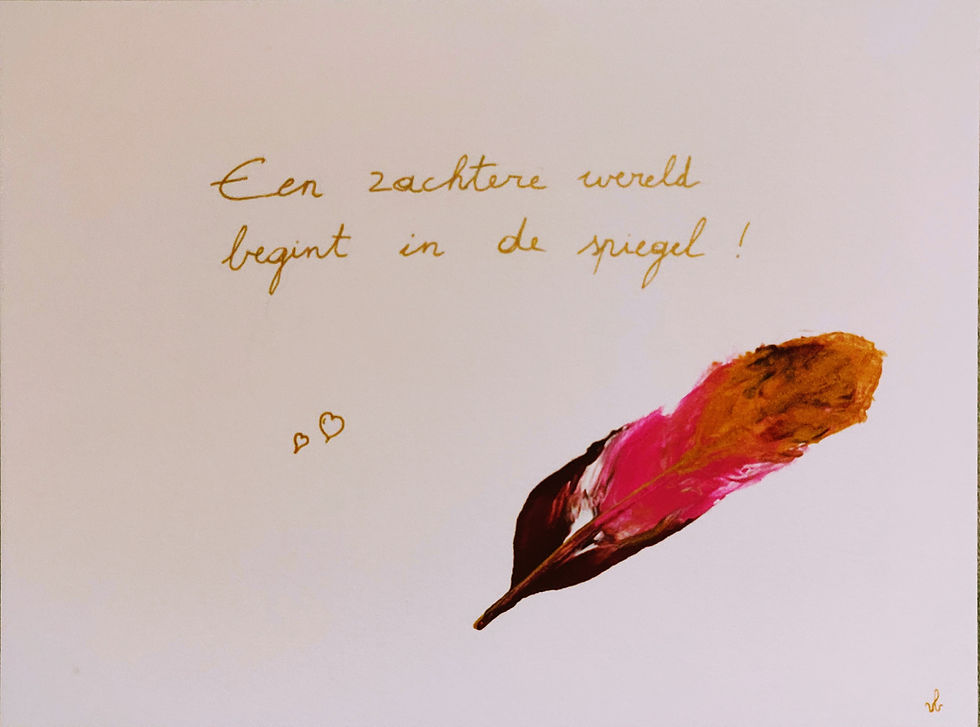 Een zachtere wereld
begint in de spiegel !
vb